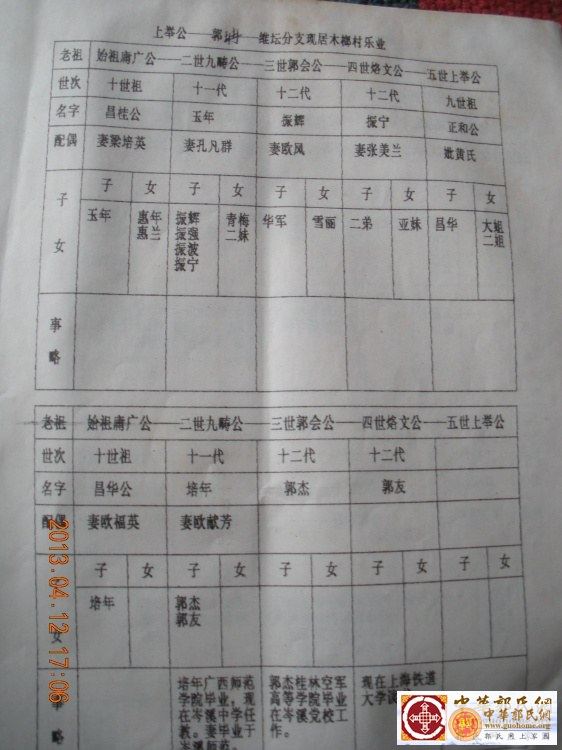 上举公——郭 ——维坛分支现居木榔村乐业
老祖 始祖南广公——二世九畴公——三世郭会公——四世烙文公——五世上举公
世次 十世祖 十一代 十二代 十二代 九世祖
名字 昌桂公 玉年 振辉 振宁 正和公
配偶 妻梁培英 妻孔凡群 妻欧风 妻张美兰 妣黄氏
子女 子 女 子 女 子 女 子 女 子 女
玉年 惠年 振辉 青梅 华军 雪丽 二弟 亚妹 昌华 大姐
惠兰 振强 二妹 二姐
振波
振宁
事略
老祖 始祖南广公——二世九畴公——三世郭会公——四世烙文公——五世上举公
世次 十世祖 十一代 十二代 十二代
名字 昌华公 培年 郭杰 郭友
配偶 妻欧福英 妻欧献芳
子 女 子 女 子 女 子 女 子 女
女 培年 郭杰
郭友
略 培年广西师范 郭杰桂林空军 现在上海铁道
学院毕业，现 高等学院毕业 大学
在岑溪中学任 在岑溪党校工
教。妻毕业于 作。
岑溪师范
2013.04.12 17:06
中華郭氏網
中華郭氏網
www.guohome.org
郭氏网上家园